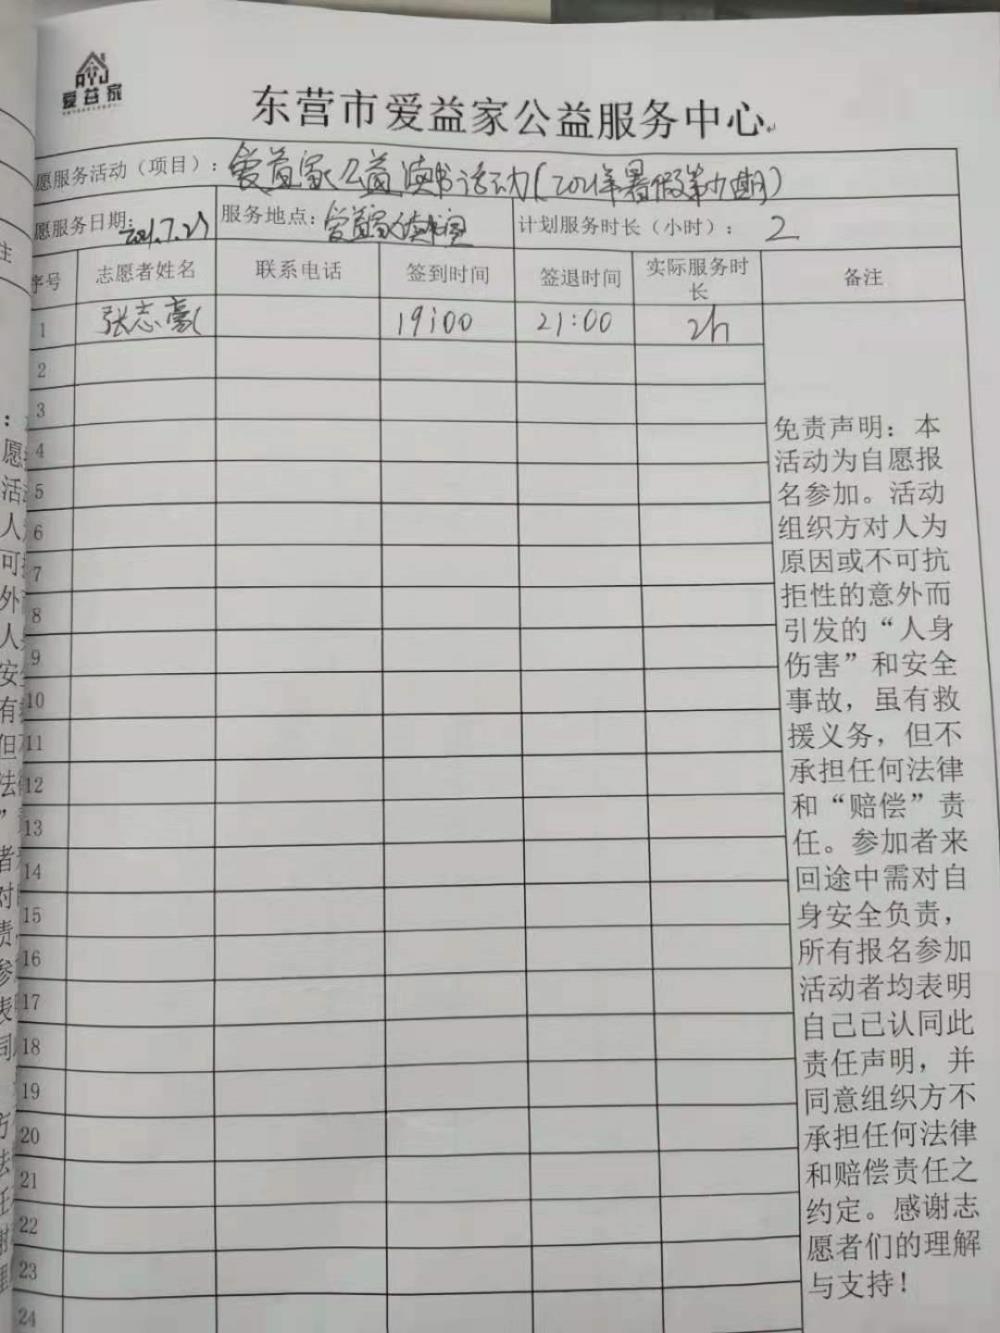 爱益家
东营市爱益家公益服务中心
愿服务活动（项目）：爱益家公益读书活动（2021年暑假第九期）
愿服务日期：2021.7.27 服务地点：爱益家 计划服务时长（小时）：2
序号 志愿者姓名 联系电话 签到时间 签退时间 实际服务时长 备注
1 张志豪 19:00 21:00 2h
2
3
4
5
6
7
8
9
10
11
12
13
14
15
16
17
18
19
20
21
22
23
24
免责声明：本
活动为自愿报
名参加。活动
组织方对人为
原因或不可抗
拒性的意外而
引发的“人身
伤害”和安全
事故，虽有救
援义务，但不
承担任何法律
和“赔偿”责
任。参加者来
回途中需对自
身安全负责，
所有报名参加
活动者均表明
自己已认同此
责任声明，并
同意组织方不
承担任何法律
和赔偿责任之
约定。感谢志
愿者们的理解
与支持！